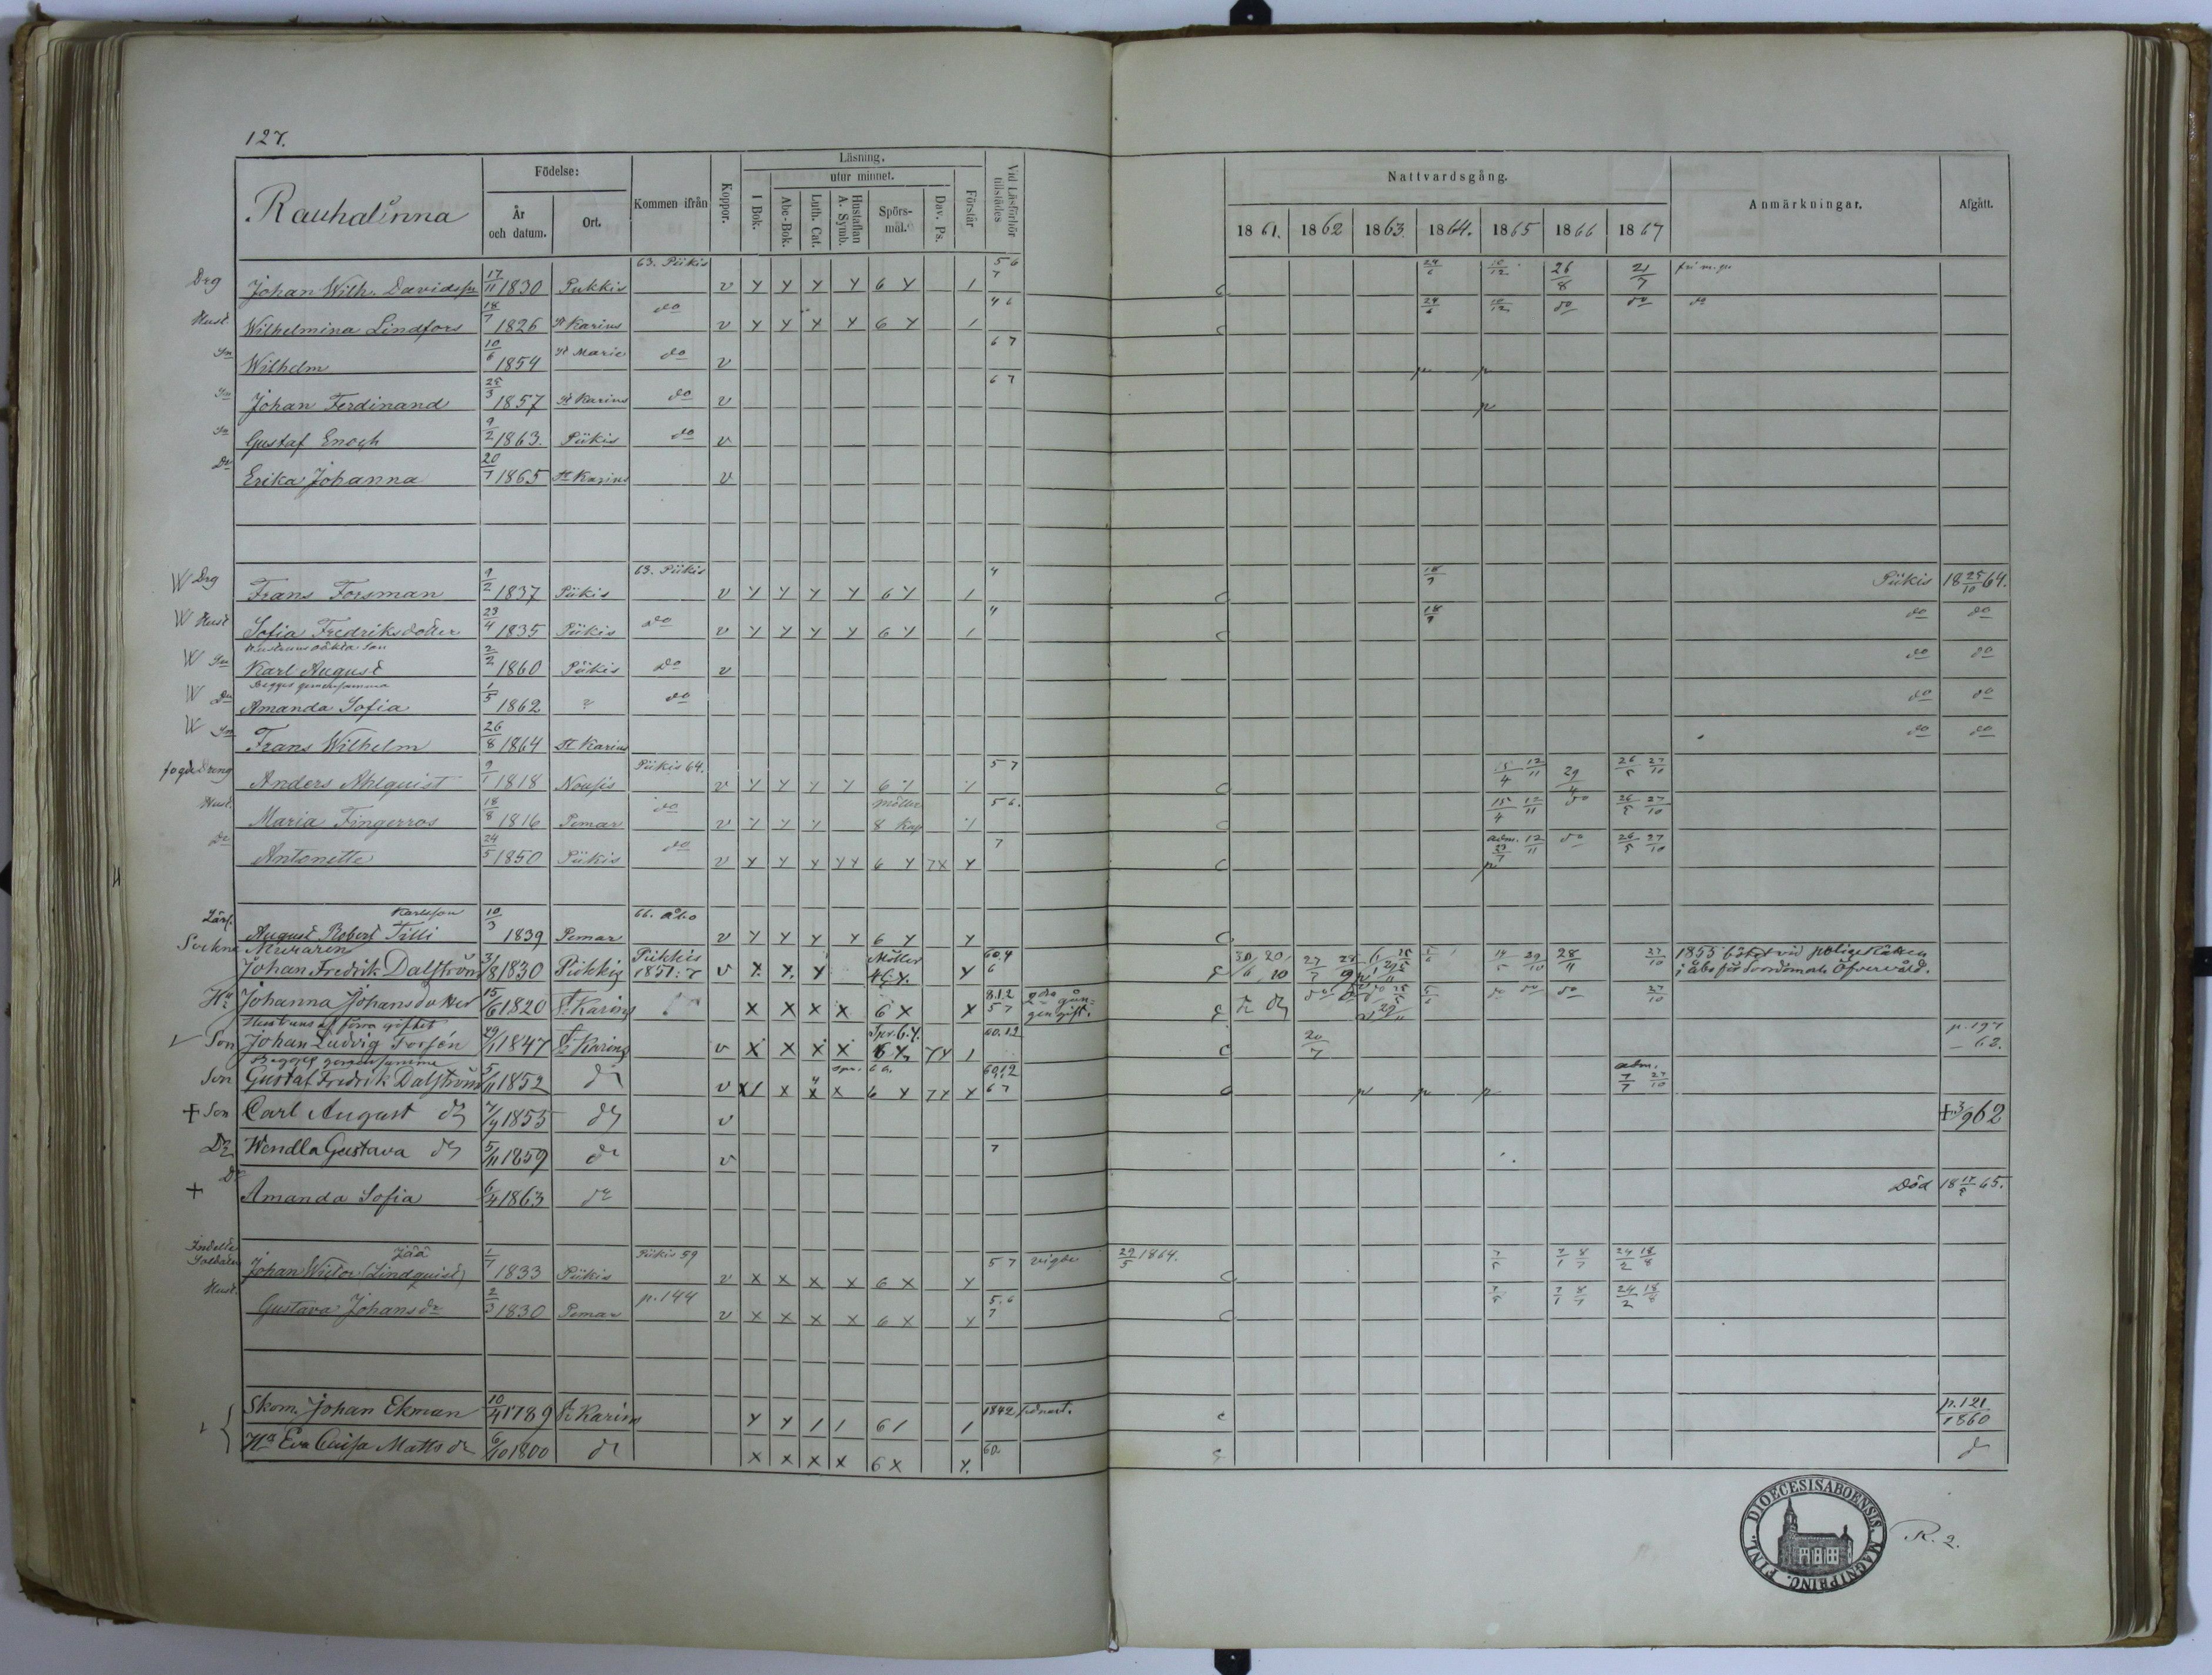 127.
Rauhalinna
Födelse:
År och datum.
Ort.
Kommen ifrån
Koppor.
Läsning.
I Bok.
utur minnet.
Abc-Bok.
Luth. Cat.
Hustaflan A. Symb.
Spörs-mål.
Dav. Ps.
Förstår
Vid Läsförhör tillstädes
Nattvardsgång.
1861. 1862 1863. 1864. 1865 1866 1867
Anmärkningar.
Afgått.
Drg Johan Wilh. Davidss:n 17/11 1830 Pikkis 63. Piikis v y y y y 6 y 1 5 6 7 24/6 10/12 26/8 21/7
Hust Wilhelmina Lindfors 18/7 1826 St Karins do v y y y y 6 y 1 4 6 24/6 10/12 do do do
Sn Wilhelm 10/6 1854 St Marie do v 6 7
Sn Johan Ferdinand 25/3 1857 St Karins do v 6 7
Sn Gustaf Enoch 9/2 1863. Piikis do v
Dr Erika Johanna 20/7 1865 St Karins v
W Drg Frans Forsman 9/2 1837 Piikis 63. Piikis v y y y y 6 y 1 4 18/7 Piikis 18 25/10 64.
W Hust Sofia Fredriksdotter 23/4 1835 Piikis do v y y y y 6 y 1 4 18/7 do do
Hustruns oäkta son
W Sn Karl August 2/2 1860 Piikis do v do do
Begges gemensamma
W Dr Amanda Sofia 1/5 1862 ? do do do
W Sn Frans Wilhelm 26/8 1864 St Karins do do
fogdedreng Anders Ahlquist 9/1 1818 Nousis Piikis 64. v y y y y 6 y y 5 7 15/4 12/11 29/4 26/5 27/10
Hust. Maria Fingerroos 18/8 1816 Pemar do v y y y möller 8 Kap y 5 6. 15/4 12/11 do 26/5 27/10
Dr Antonette 24/5 1850 Piikis do v y y y y y 6 y 7 x y 7 adm. 12/11 do 26/5 27/10
Karlsson
August Robert Tilli 10/3 1839 Pemar 66. Åbo v y y y y 6 y y
Sockne Muraren
Johan Fredrik Dalström 3/8 1830 Piikkis Piikkis 1851: v x x y Möller y 6 28/11 27/10 1855 bötat vid polisrätten
i Åbo för Öfvervåld.
Hu Johanna Johansdotter 15/6 1820 St Karins x x x x 6 x x 8.12 5 7 2dra gången gift. 5/6 do do do 27/10
Hustruns af förra giftet
Son Johan Ludvig Forsén 29/1 1847 St Karins v x x x x 6 7 y 1 60.12 20/7 p. 197 - 63.
Begges gemensamme
Son Gustaf Fredrik Dalström 5/11 1852 do v x x x x 6 y 7 x y 6 7 adm. 7/7 27/10
+ Son Carl August do 7/9 1855 do v + 3/9 62
Dr Wendla Gustava do 5/11 1859 do v 7
+ Dr Amanda Sofia 6/4 1863 do Död 18 17/5 65.
Indelte Soldaten Jää
Johan Wictor (Lindquist) 1/7 1833 Piikis Piikis 59 v x x x x 6 x y 5 7 vigde 29/5 1864. 7/1 8/7 24/2 18/8
Hust. Gustava Johansdr 2/3 1830 Pemar p. 144 v x x x x 6 x y 5. 6 7 7/1 8/7 24/2 18/8
Skom. Johan Ekman 10/4 1789 St Karins y y 1 1 6 1 1 1842 p. 121 1860
Ha Eva Caisa Matts dr 6/10 1800 do x x x x 6 x y. 60. do
DIOECESIS ABOENSIS. MAGNI PRINC. FINL.
R. 2.